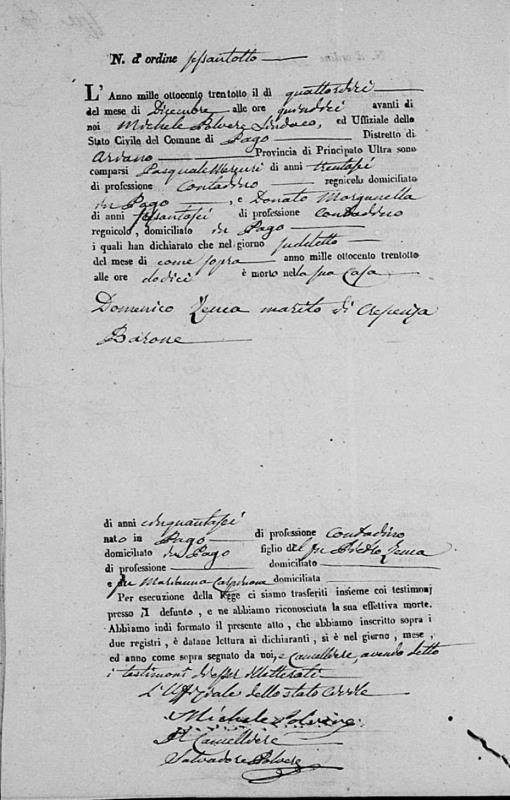 N. d'ordine sessantotto
L'Anno mille ottocento trentotto il di quattordici
del mese di Dicembre alle ore quindici avanti di
noi Michele Polvere Sindaco, ed Uffiziale dello
Stato Civile del Comune di Pago Distretto di
Ariano Provincia di Principato Ultra sono
comparsi Pasquale Mercuri di anni trentasei
di professione Contadino regnicolo domiciliato
in Pago, e Donato
di anni sessantasei di professione Contadino
regnicolo, domiciliato in Pago
i quali han dichiarato che nel giorno sudetto
del mese di come sopra anno mille ottocento trentotto
alle ore dodici è morto nella sua Casa
Domenico Zenca marito di Crescenza
Barone
di anni cinquantasei
nato in Pago di professione Contadino
domiciliato in Pago figlio del fu Pietro Zenca
di professione domiciliato
e fu Marianna domiciliata
Per esecuzione della legge ci siamo trasferiti insieme coi testimonj
presso il defunto, e ne abbiamo riconosciuta la sua effettiva morte.
Abbiamo indi formato il presente atto, che abbiamo inscritto sopra i
due registri, è datane lettura ai dichiaranti, si è nel giorno, mese,
ed anno come sopra segnato da noi, e Cancelliere, avendo detto
i testimoni d'esser illetterati
L'Uffiziale dello stato Civile
Michele Polvere
Il Cancelliere
Salvadore Polvere